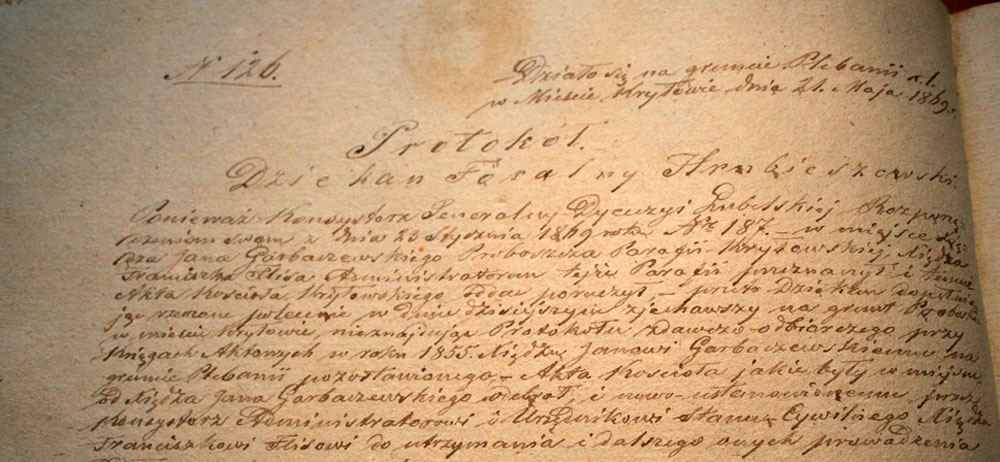 N 126.
Działo się na gruncie Plebanii r. l.
w Mieście Kryłowie dnia 21. Maja 1869.
Protokół.
Dziekan Foralny Hrubieszewski.
Ponieważ Konsystorz Generalny Dyecezyi Lubelskiej Rozporzą
dzeniem swem z dnia 23 Stycznia 1869 roku Nr 187. – w miejsce Xię
dza Jana Garbaczewskiego Proboszcza Parafii Kryłowskiej, Xiędza
Franciszka Flisa Administratorem tejże Parafii przeznaczył i temuż
Akta Kościoła Kryłowskiego oddać poruczył – przeto Dziekan dopełniając
rzeczone polecenie w dniu dzisiejszym zjechawszy na grunt Probostwa
w mieście Kryłowie, nieznajdując Protokółu zdawczo-odbiorczego przy
Księgach Aktowych w roku 1855. Xiędzu Janowi Garbaczewskiemu na
gruncie Plebanii pozostawionego – Akta Kościoła jakie były w miejscu
od Xiędza Jana Garbaczewskiego odebrał, i nowo-ustanowionemu przez
Konsystorz Administratorowi i Urzędnikowi Stanu Cywilnego Xiędzu
Franciszkowi Flisowi do utrzymania i dalszego onych prowadzenia